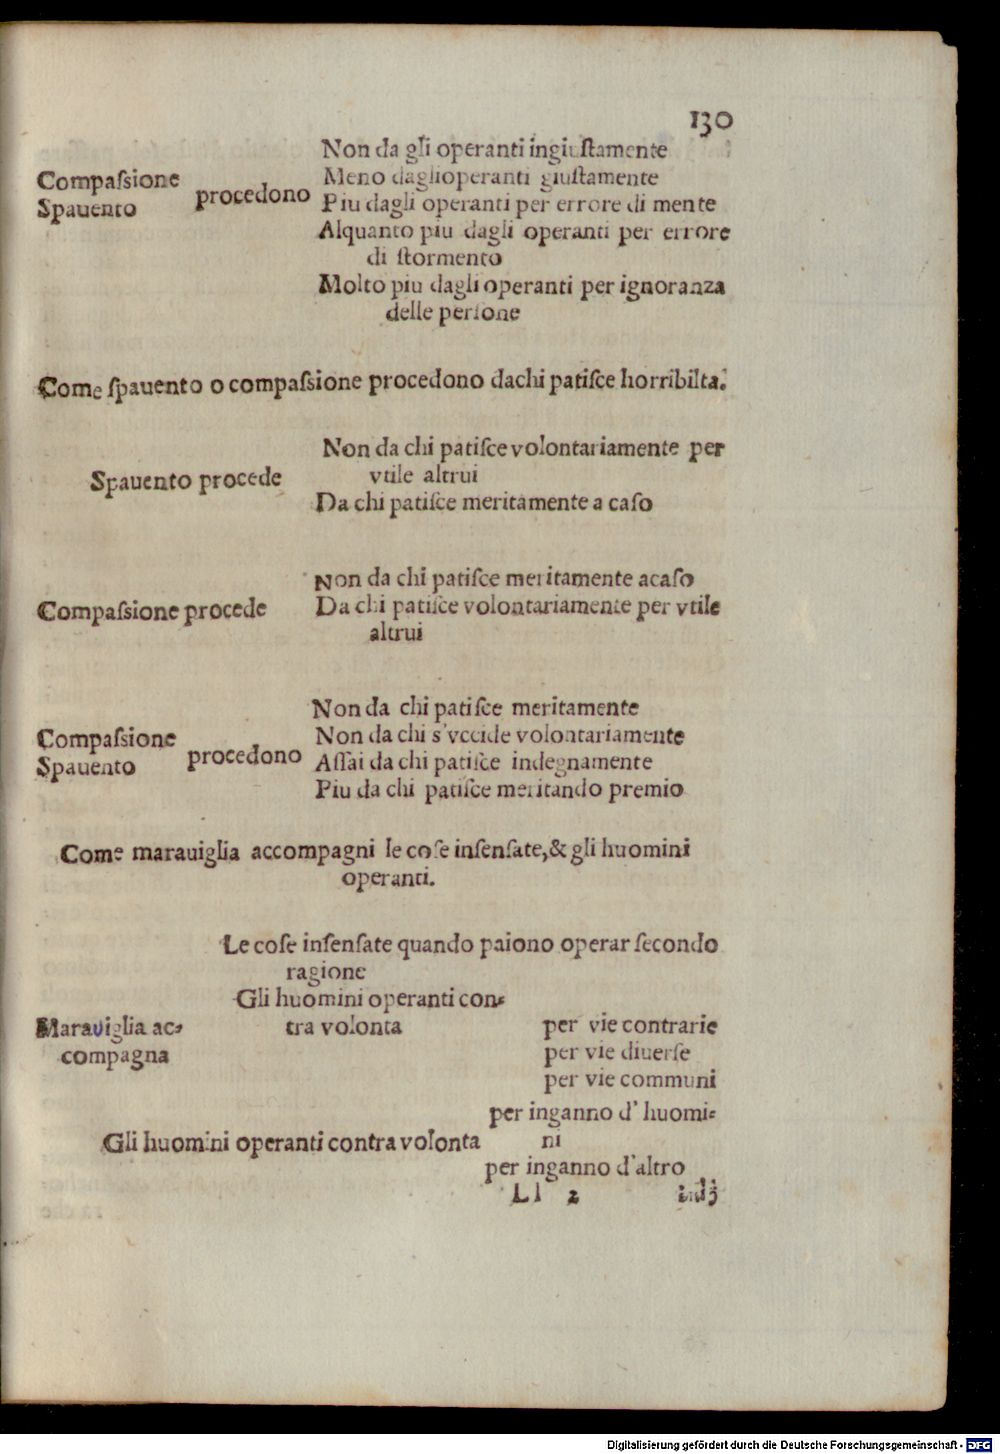 130
Non da gli operanti ingiuſtamente
Compaſsione
Spauento
procedono
Meno daglioperanti giuſtamente
Piu dagli operanti per errore di mente
Alquanto piu dagli operanti per errore
di ſtormento
Molto piu dagli operanti per ignoranza
delle perſone
Come ſpauento o compaſsione procedono dachi patiſce horribilta.
Spauento procede
Non da chi patiſce volontariamente per
vtile altrui
Da chi patiſce meritamente a caſo
Compaſsione procede
Non da chi patiſce meritamente acaſo
Da chi patiſce volontariamente per vtile
altrui
Compaſsione
Spauento
procedono
Non da chi patiſce meritamente
Non da chi s'vccide volontariamente
Aſſai da chi patiſce indegnamente
Piu da chi patiſce meritando premio
Come marauiglia accompagni le coſe inſenſate,& gli huomini
operanti.
Le coſe inſenſate quando paiono operar ſecondo
ragione
Gli huomini operanti con-
tra volonta
Maraviglia ac-
compagna
per vie contrarie
per vie diuerſe
per vie communi
Gli huomini operanti contra volonta
per inganno d' huomi-
ni
per inganno d'altro
Ll 2
Digitalisierung gefördert durch die Deutsche Forschungsgemeinschaft - DFG